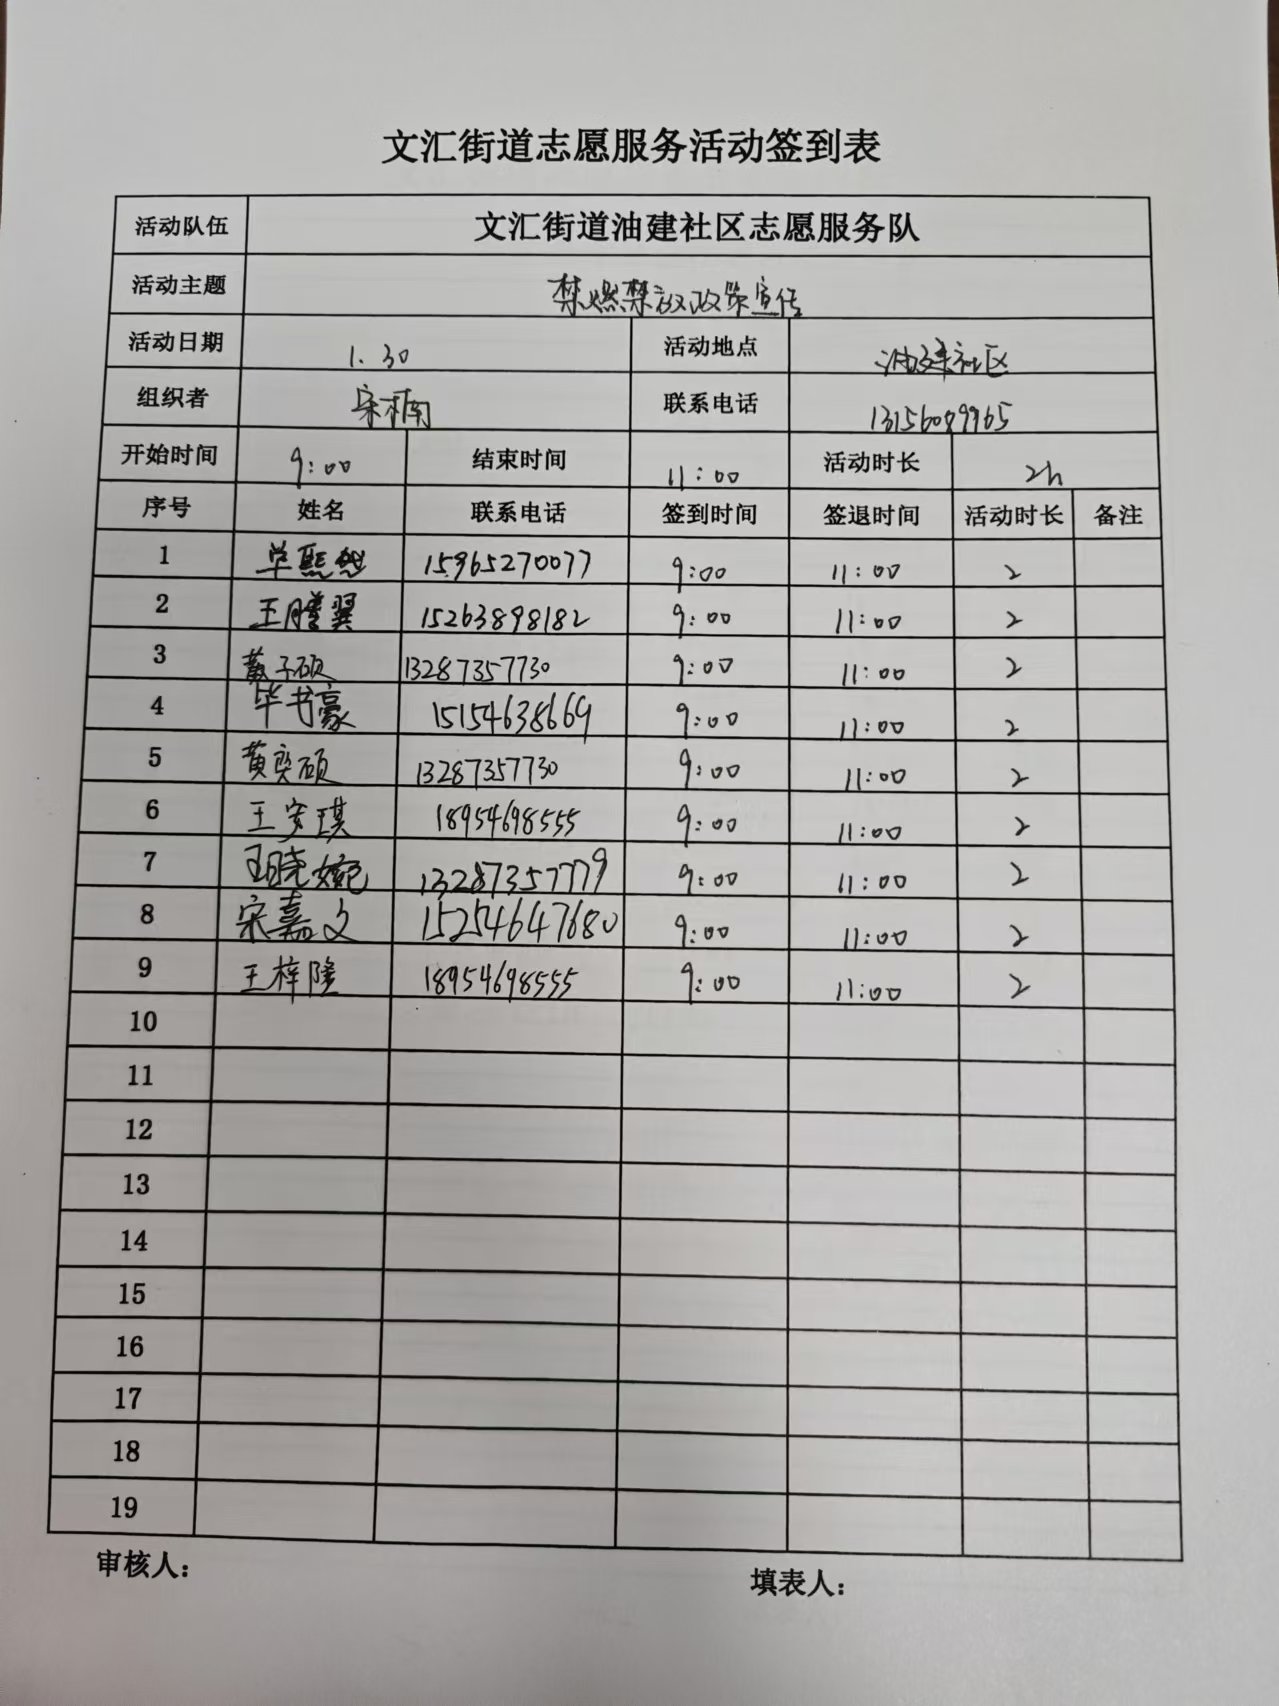 文汇街道志愿服务活动签到表
活动队伍 文汇街道油建社区志愿服务队
活动主题 禁燃禁放政策宣传
活动日期 1.30 活动地点 油建社区
组织者 宋楠 联系电话 13156089965
开始时间 9:00 结束时间 11:00 活动时长 2h
序号 姓名 联系电话 签到时间 签退时间 活动时长 备注
1 单熙然 15965270077 9:00 11:00 2
2 王腾翼 15263898182 9:00 11:00 2
3 黄子硕 13287357730 9:00 11:00 2
4 毕书豪 15154638669 9:00 11:00 2
5 黄奕硕 13287357730 9:00 11:00 2
6 王安琪 18954698555 9:00 11:00 2
7 王晓 13287357779 9:00 11:00 2
8 宋嘉文 15254647680 9:00 11:00 2
9 王梓隆 18954698555 9:00 11:00 2
10
11
12
13
14
15
16
17
18
19
审核人： 填表人：